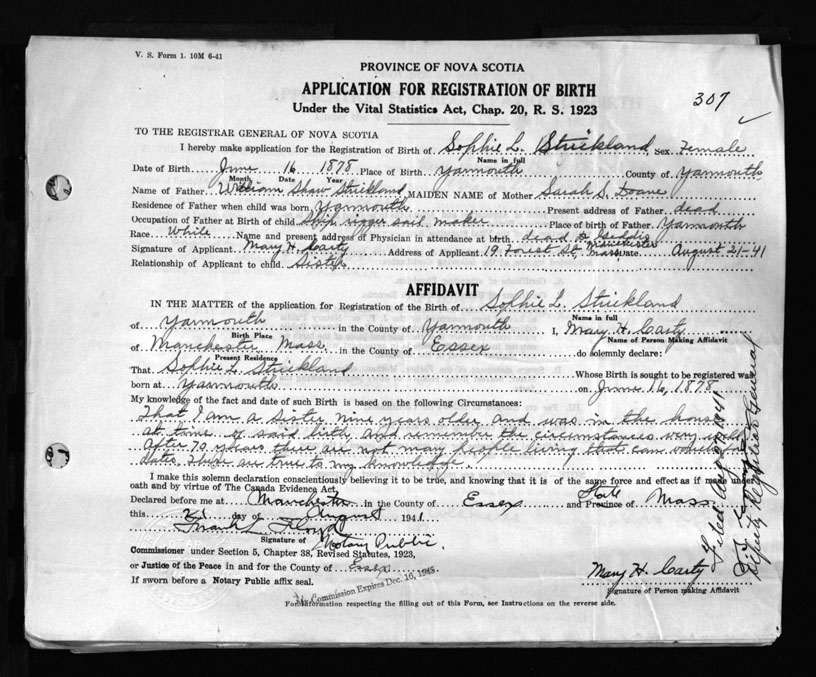 V. S. Form 1. 10M 6-41
PROVINCE OF NOVA SCOTIA
APPLICATION FOR REGISTRATION OF BIRTH
Under the Vital Statistics Act, Chap. 20, R. S. 1923
307
TO THE REGISTRAR GENERAL OF NOVA SCOTIA
I hereby make application for the Registration of Birth of Sophie L. Strickland Sex Female
Name in full
Date of Birth June 16 1878 Place of Birth Yarmouth County of Yarmouth
Month Date Year
Name of Father William Shaw Strickland MAIDEN NAME of Mother Sarah S. Doane
Residence of Father when child was born Yarmouth Present address of Father dead
Occupation of Father at Birth of child Ship rigger sail maker Place of birth of Father Yarmouth
Race White Name and present address of Physician in attendance at birth dead
Signature of Applicant Mary H. Carty Address of Applicant 19 Forest St. Manchester Mass Date August 21-41
Relationship of Applicant to child Sister
AFFIDAVIT
IN THE MATTER of the application for Registration of the Birth of Sophie L. Strickland
Name in full
of Yarmouth in the County of Yarmouth I, Mary H. Carty
Birth Place Name of Person Making Affidavit
of Manchester Mass in the County of Essex do solemnly declare:
Present Residence
That Sophie L. Strickland Whose Birth is sought to be registered was
born at Yarmouth on June 16, 1878
My knowledge of the fact and date of such Birth is based on the following Circumstances:
That I am a sister nine years older and was in the house
at time of said birth and remember the circumstances very well
After 70 years there are not many people living that can vouch for
dates. These are true to my knowledge.
I make this solemn declaration conscientiously believing it to be true, and knowing that it is of the same force and effect as if made under
oath and by virtue of The Canada Evidence Act,
Declared before me at Manchester in the County of Essex State and Province of Mass
this 21 day of August 1941
Frank L. Floyd
Signature of Notary Public.
Commissioner under Section 5, Chapter 38, Revised Statutes, 1923,
or Justice of the Peace in and for the County of Essex
If sworn before a Notary Public affix seal.
My Commission Expires Dec. 16,
Mary H. Carty
Signature of Person making Affidavit
For information respecting the filling out of this Form, see Instructions on the reverse side.
Filed Aug 1941
Deputy Registrar General